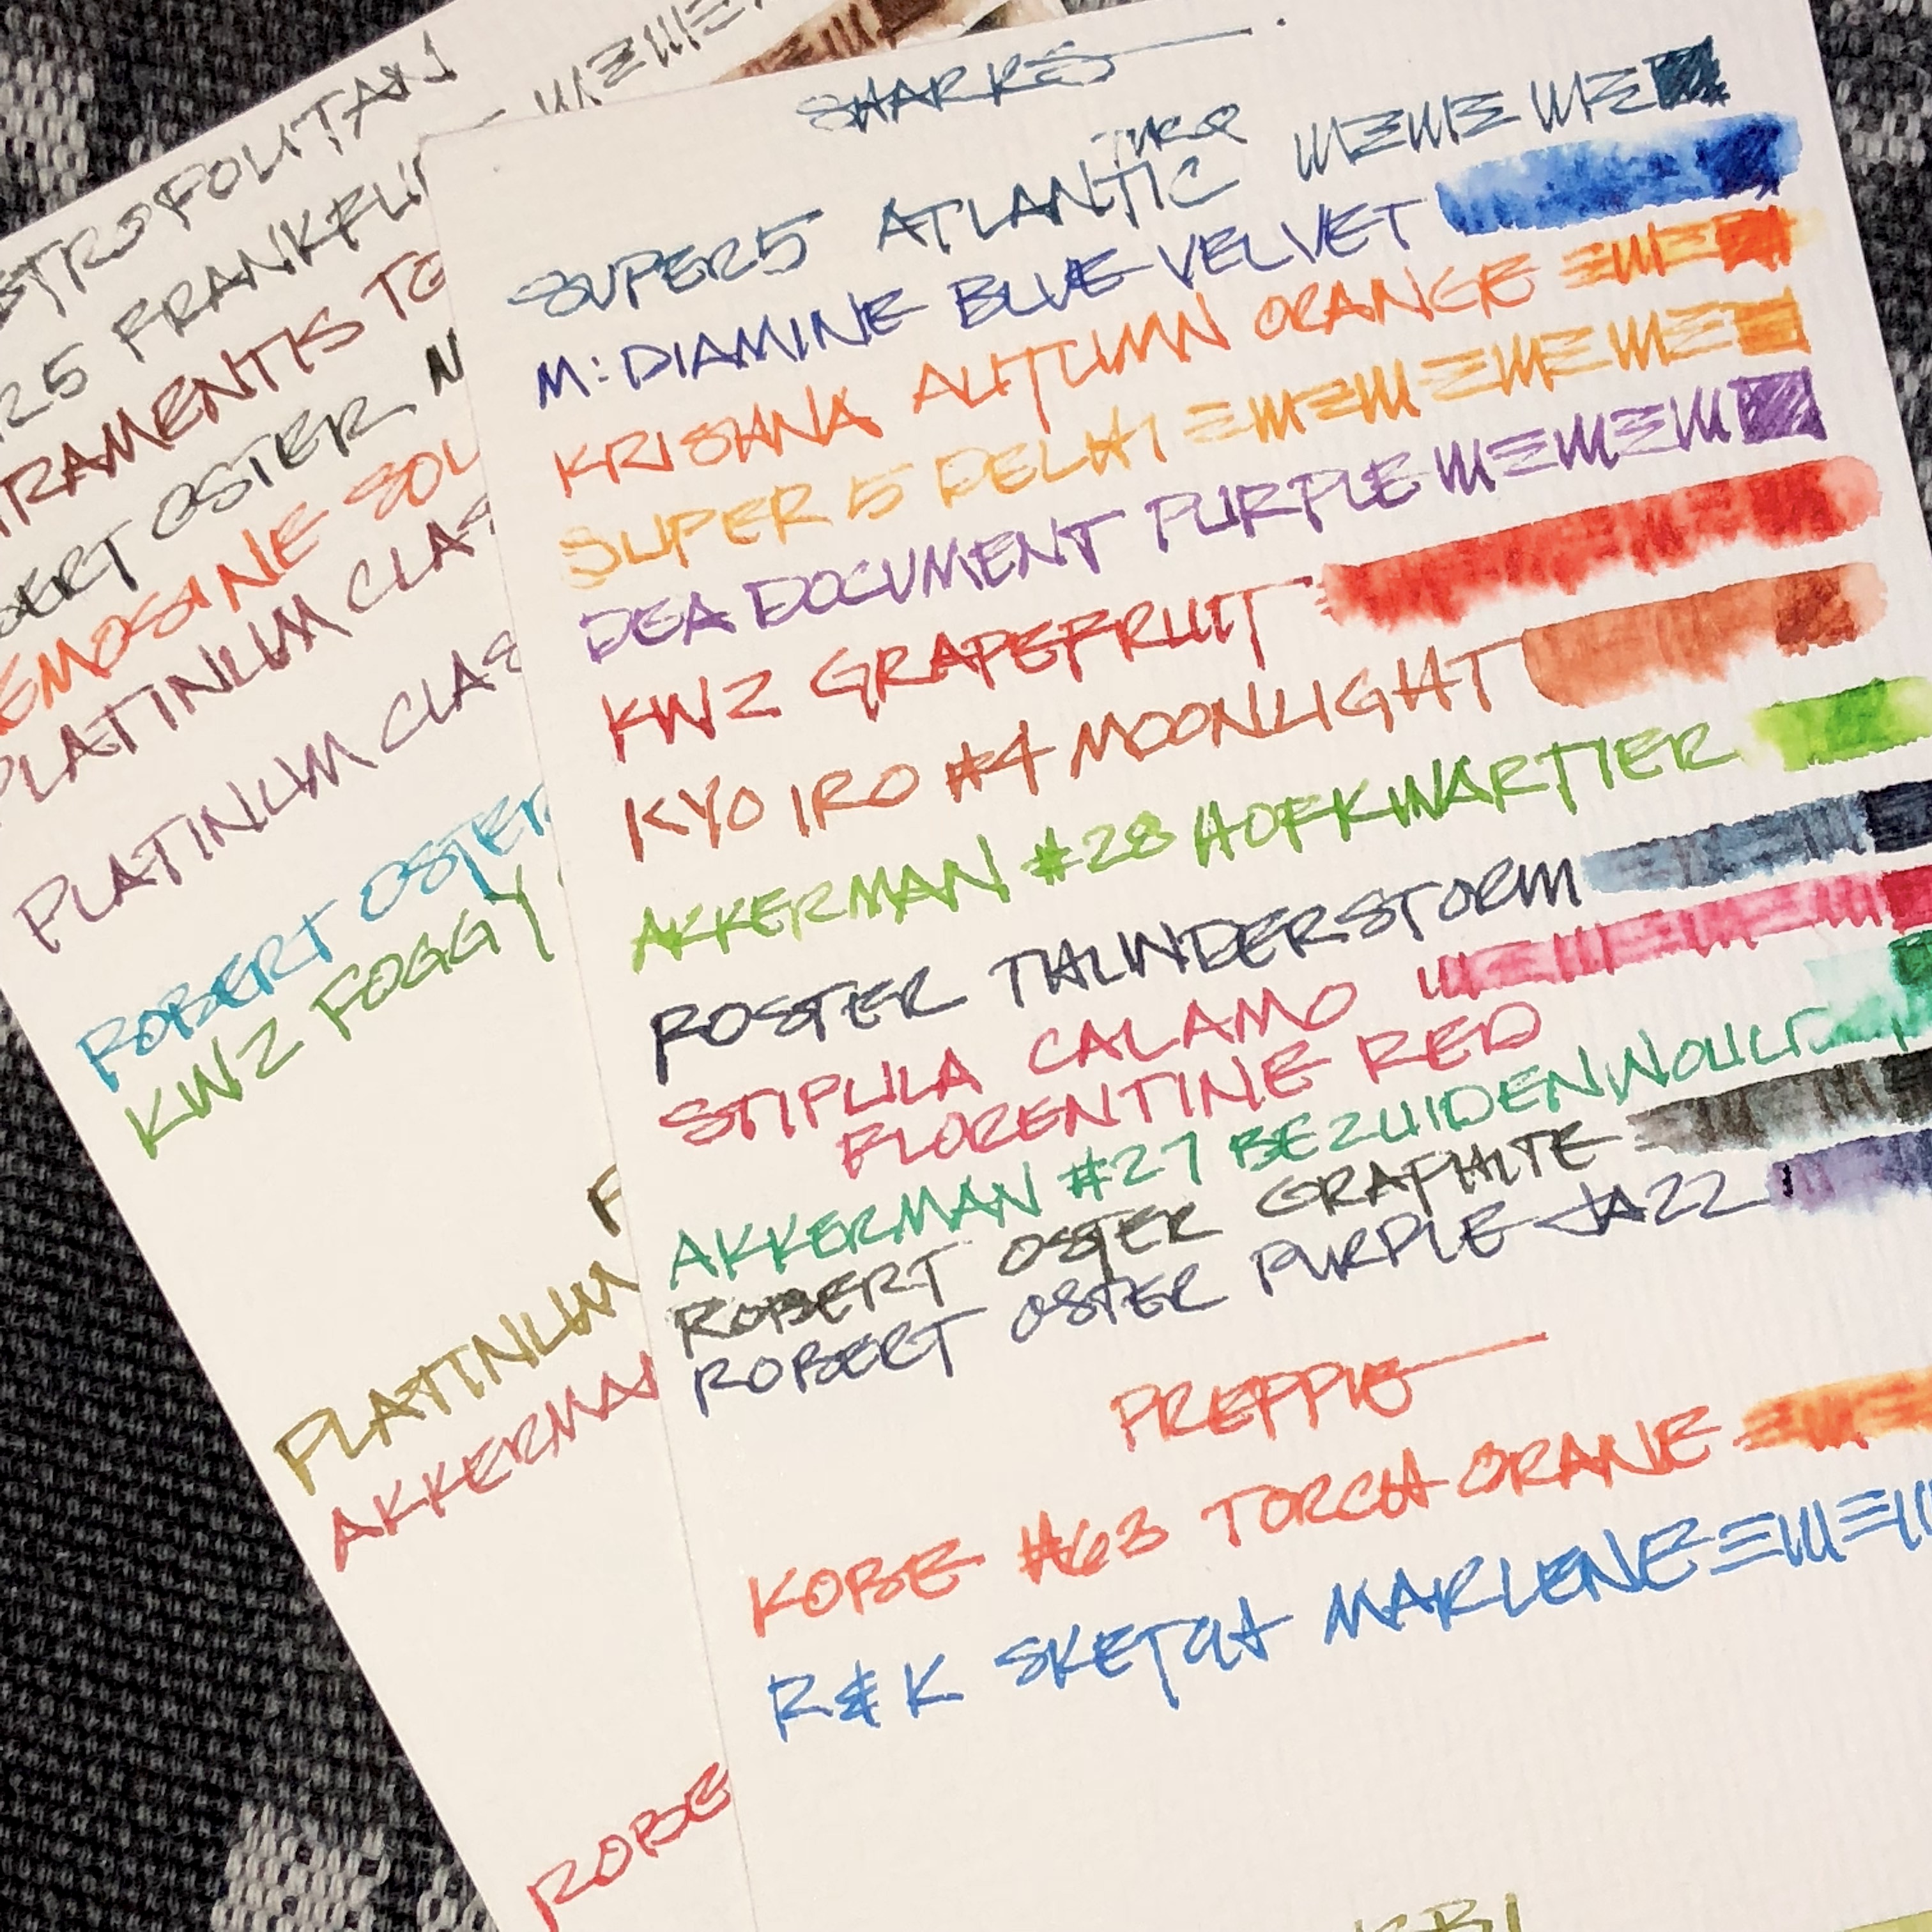 SHARKS
TURQ
SUPER5 ATLANTIC
M: DIAMINE BLUE VELVET
KRISHNA AUTUMN ORANGE
SUPER 5 DELHI
DEA DOCUMENT PURPLE
KWZ GRAPEFRUIT
KYO IRO #4 MOONLIGHT
AKKERMAN #28 HOFKWARTIER
ROSTER THUNDERSTORM
STIPULA CALAMO
FLORENTINE RED
AKKERMAN #27 BEZUIDENWOUUT
ROBERT OSTER GRAPHITE
ROBERT OSTER PURPLE JAZZ
PREPPIE
KOBE #63 TORCH ORANE
R&K SKETCH MARLENE
STROPOLITAN
R5 FRANKFU
RAMENTIS
BERT OSTER N
EMOSINE SOL
PLATINUM CLAS
PLATINUM CLAS
ROBERT OSTER
KWZ FOGGY
PLATINUM
AKKERMA
ROBE